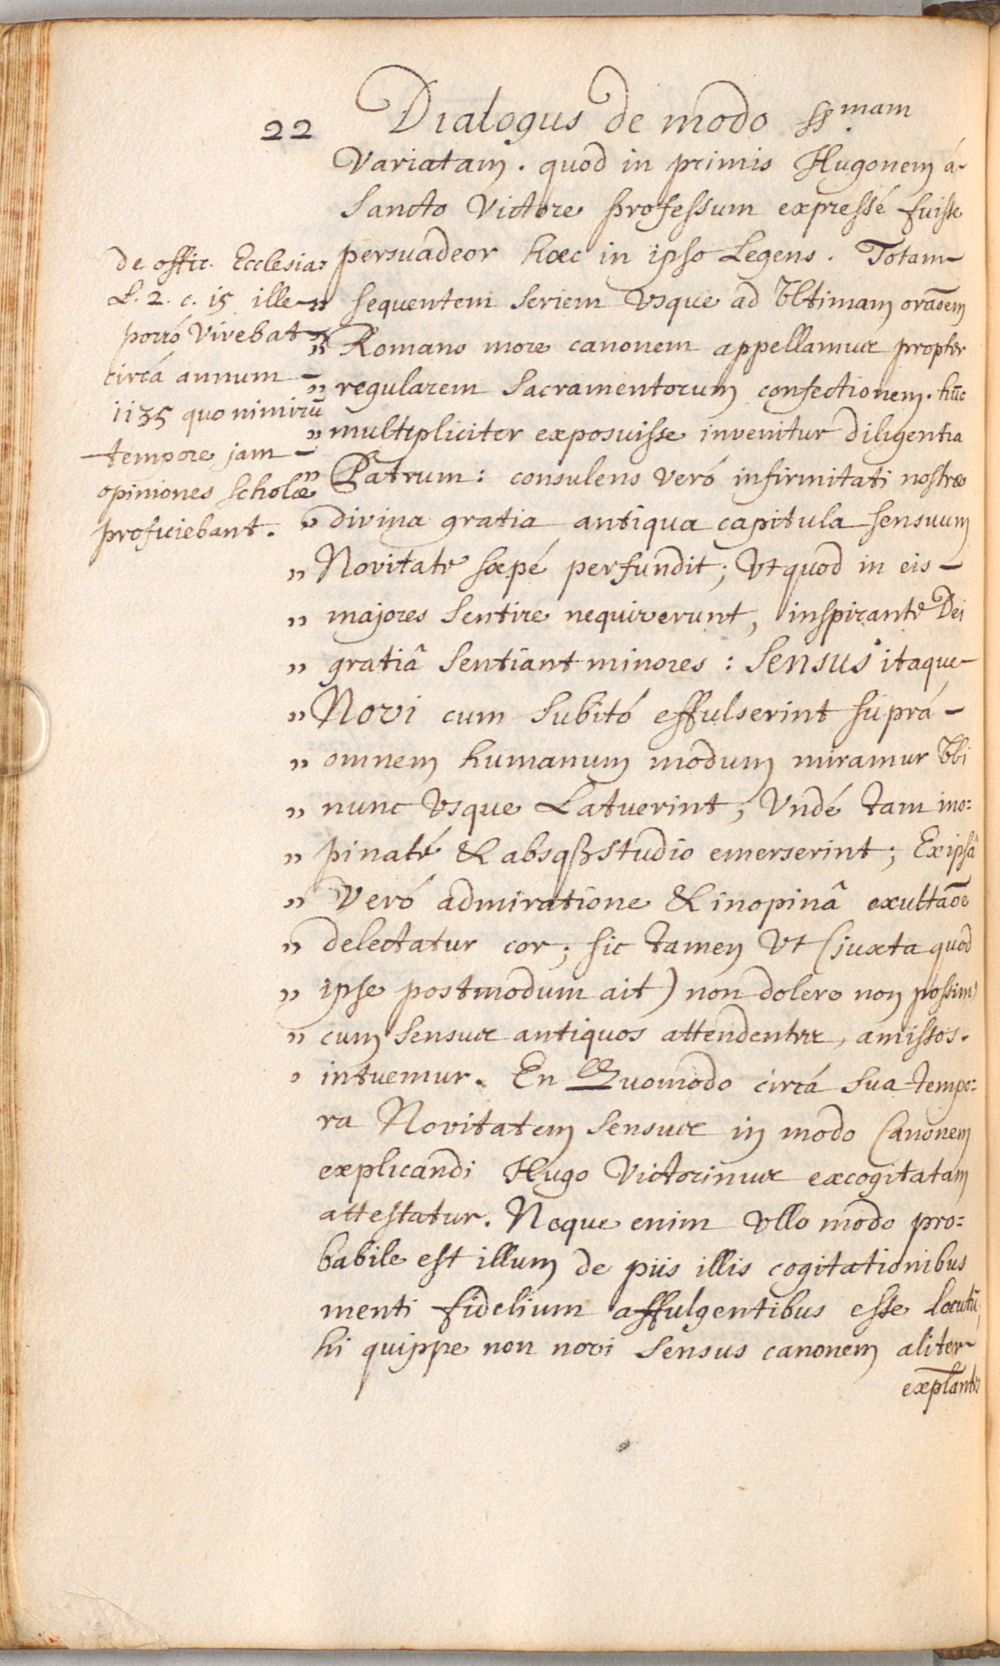 22 Dialogus de modo ss.mam
Variatam. quod in primis Hugonem á
Sancto Victore professum expressé fuisse
persuadeor hæc in ipso Legens. Totam
„ sequentem seriem Vsque ad Vltimam oraõem
„ Romano more canonem appellamus propter
„ regularem Sacramentorum confectionem. hũc
„ multipliciter exposuisse invenitur diligentia
„ Patrum: consulens veró infirmitati nostræ
„ divina gratia antiqua capitula sensuum
„ Novitate sæpé perfundit; Vt quod in eis
„ majores Sentire nequiverunt, inspirante Dei
„ gratiâ Sentiant minores: Sensus itaque
„ Novi cum Subitó effulserint suprá
„ omnem humanum modum miramur Vbi
„ nunc Vsque Latuerint; Vndé tam ino=
„ pinaté & absqȝ studio emerserint; Ex ipsâ
„ Veró admiratione & inopinâ exultaõe
„ delectatur cor; sic tamen Vt (juxta quod
„ ipse postmodum ait) non dolere non possim,
„ cum Sensus antiquos attendentes, amissos.
„ intuemur. En Quomodo circá Sua tempo=
ra Novitatem Sensus in modo Canonem
explicandi Hugo Victorinus excogitatam
attestatur. Neque enim Vllo modo pro=
babile est illum de piis illis cogitationibus
menti fidelium affulgentibus esse locutũ,
hi quippe non novi Sensus canonem aliter
explantes
de offic. Ecclesia:
L. 2. c. 15 ille
porró Vivebat
circá annum
1135 quo nimirũ
tempore jam
opiniones scholæ
proficiebant.